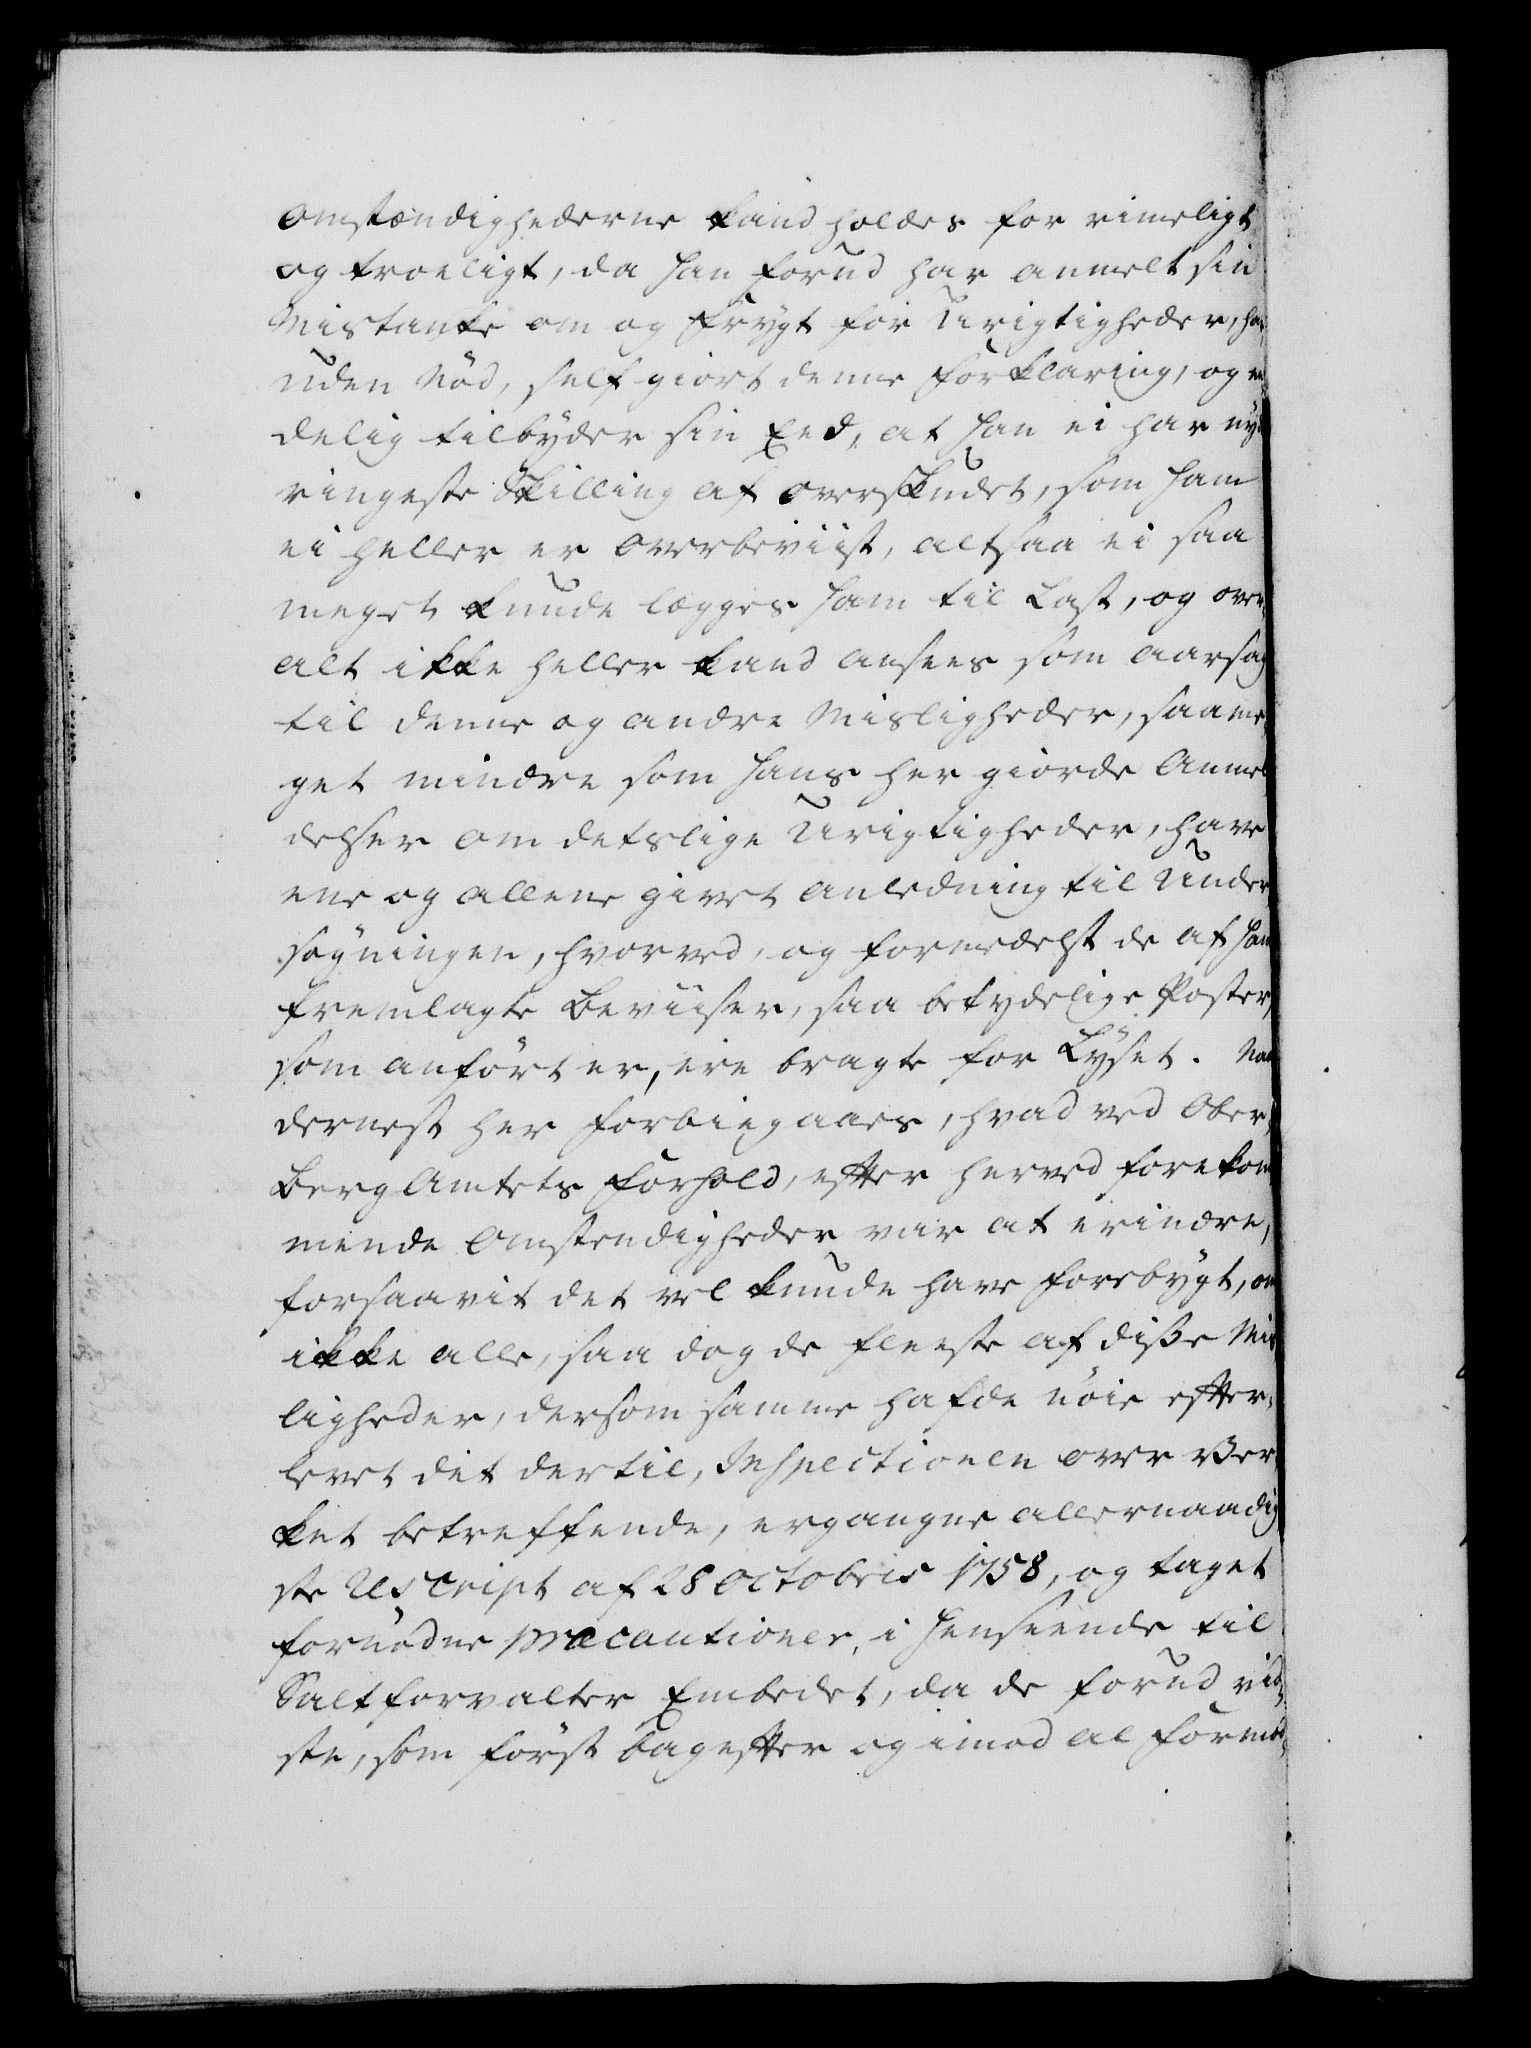 Omstændighederne kand holdes for rimeligt
og troeligt, da han forud har anmelt sin
Mistanke om og Frygt for Urigtigheder, har
uden Nöd, self giort denne Forklaring, og en¬
delig tilbyder sin Eed, at han ei har nydt
ringeste Skilling af Overskudet, som ham
ei heller er overbeviist, altsaa ei saa
meget kunde lægges ham til Last, og over¬
alt ikke heller kand ansees som Aarsag
til denne og andre Misligheder, saame¬
get mindre som hans her giorde Anmel¬
delser om detslige Urigtigheder, have
ene og allene givet Anledning til Under¬
søgningen, hvorved, og formedelst de af ham
fremlagte Beviiser, saa betydelige Poster,
som anfört er, ere bragte for Lyset. Naar
dernest her forbiegaaes, hvad ved Ober¬
Berg Amtets Forhold, efter herved forekom¬
mende Omstendigheder var at erindre,
forsaavit det vel kunde have forebygt, om
ikke alle, saa dog de fleeste af disse Mis¬
ligheder, dersom samme hafde nöie efter¬
levet det dertil, Inspectionen over Ver¬
ket betreffende, ergangne allernaadig¬
ste Rescript af 28 Octobris 1758, og taget
fornödne Præcautioner, i Henseende til
Saltforvalter Embedet, da de forud vid¬
ste, som först bagefter og imod al Formod¬